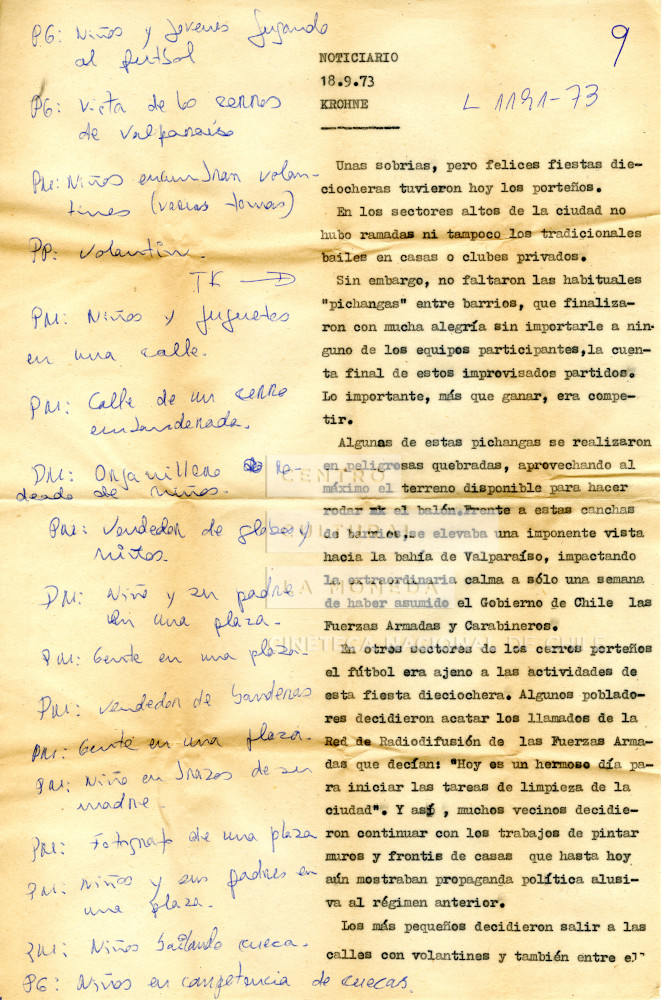 PG: Niños y jovenes jugando
al futbol
PG: Vista de los cerros
de Valparaíso
PM: Niños encumbran volan-
tines (varias tomas)
PP: Volantin.
TK
PM: Niños y juguetes
en una calle.
PM: Calle de un cerro
embanderada.
PM: Organillero Ro-
deado de niños.
PM: Vendedor de globos y
niños.
PM: Niño y su padre
en una plaza.
PM: Gente en una plaza.
PM: Vendedor de banderas
PM: Gente en una plaza.
PM: Niño en brazos de su
madre.
PM: Fotografo de una plaza
PM: Niños y sus padres en
una plaza.
PM: Niños bailando cueca.
PG: Niños en competencia de cuecas.
9
NOTICIARIO
18.9.73
KROHNE
L 1191-73
Unas sobrias, pero felices fiestas die-
ciocheras tuvieron hoy los porteños.
En los sectores altos de la ciudad no
hubo ramadas ni tampoco los tradicionales
bailes en casas o clubes privados.
Sin embargo, no faltaron las habituales
"pichangas" entre barrios, que finaliza-
ron con mucha alegría sin importarle a nin-
guno de los equipos participantes,la cuen-
ta final de estos improvisados partidos.
Lo importante, más que ganar, era compe-
tir.
Algunas de estas pichangas se realizaron
en peligrosas quebradas, aprovechando al
máximo el terreno disponible para hacer
rodar el balón.Frente a estas canchas
de barrios,se elevaba una imponente vista
hacia la bahía de Valparaíso, impactando
la extraordinaria calma a sólo una semana
de haber asumido el Gobierno de Chile las
Fuerzas Armadas y Carabineros.
En otros sectores de los cerros porteños
el fútbol era ajeno a las actividades de
esta fiesta dieciochera. Algunos poblado-
res decidieron acatar los llamados de la
Red de Radiodifusión de las Fuerzas Arma-
das que decían: "Hoy es un hermoso día pa-
ra iniciar las tareas de limpieza de la
ciudad". Y así , muchos vecinos decidie-
ron continuar con los trabajos de pintar
muros y frontis de casas que hasta hoy
aún mostraban propaganda política alusi-
va al régimen anterior.
Los más pequeños decidieron salir a las
calles con volantines y también entre el
CENTRO
CULTURAL
LA MONEDA
CINETECA NACIONAL DE CHILE